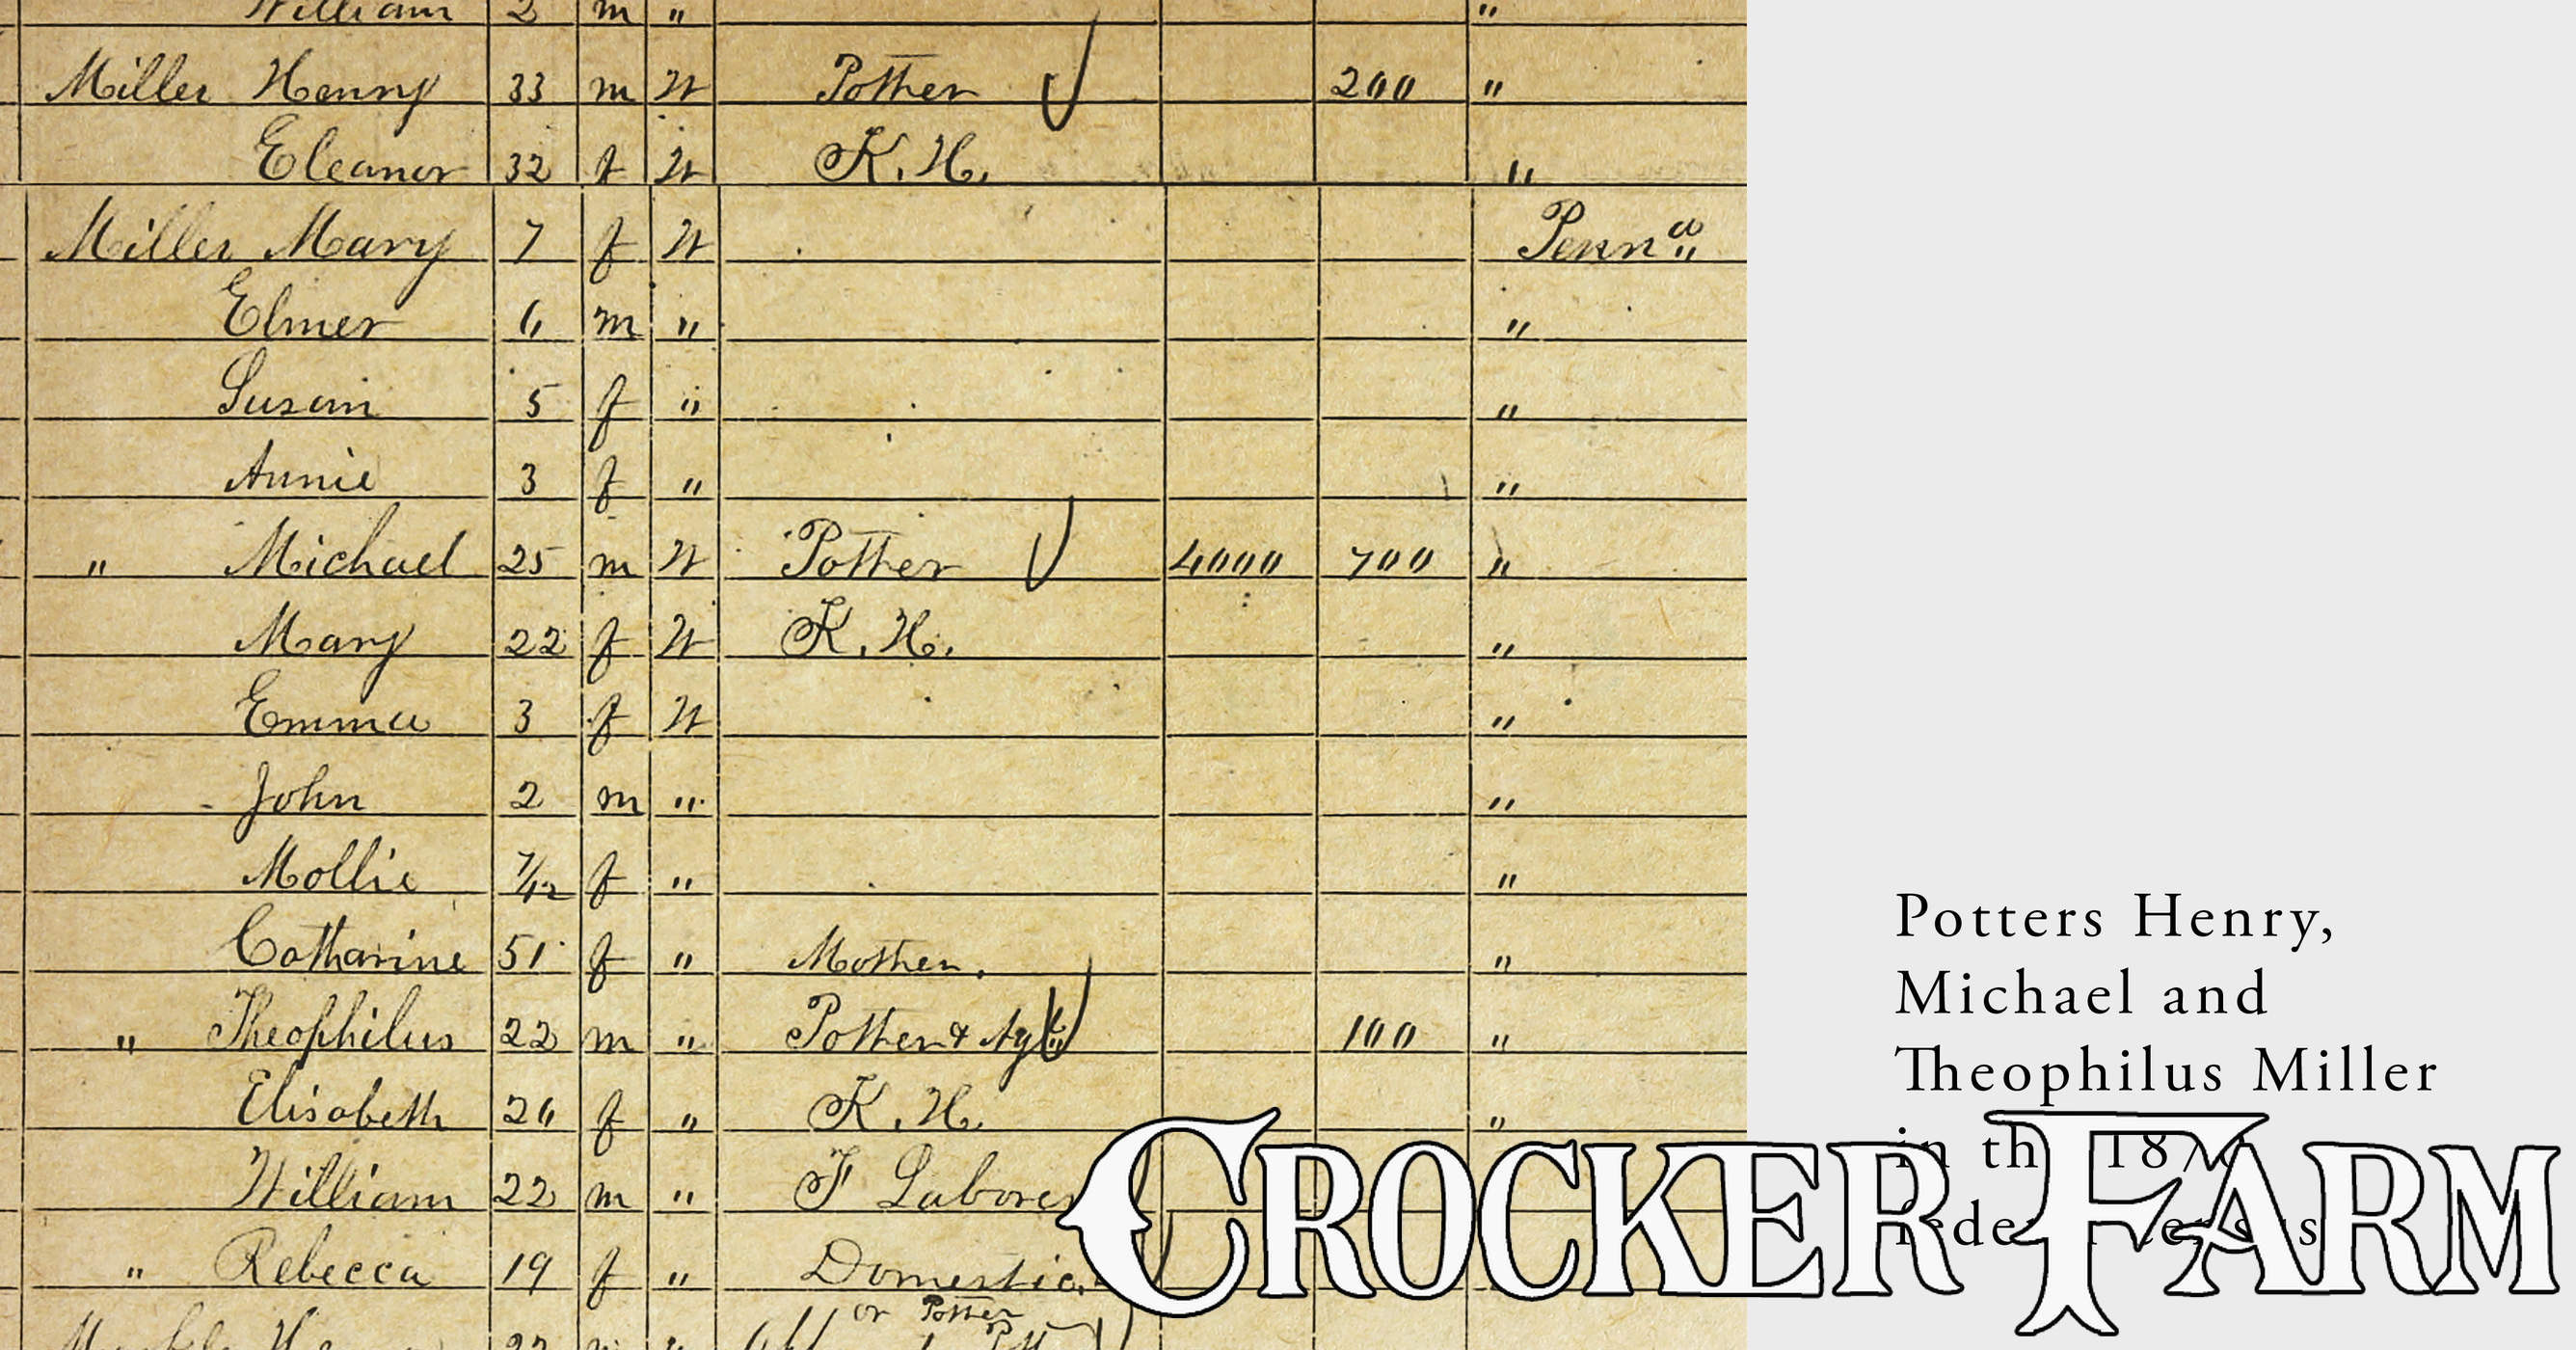 William 2 m "  "
Miller Henry 33 m W Potter 200 "
Eleanor 32 f W K. H. "
Miller Mary 7 f W Penn a "
Elmer 6 m " "
Susan 5 f " "
Annie 3 f " "
" Michael 25 m W Potter 4000 700 "
Mary 22 f W K. H. "
Emma 3 f W "
John 2 m " "
Mollie 7/12 f " "
Catharine 51 f " Mother. "
" Theophilus 22 m " Potter & 100 "
Elisabeth 26 f " K. H. "
William 22 m " F Laborer
" Rebecca 19 f " Domestic
or Potter
22
Potters Henry,
Michael and
Theophilus Miller
in the 1870
Federal Census
CROCKER FARM